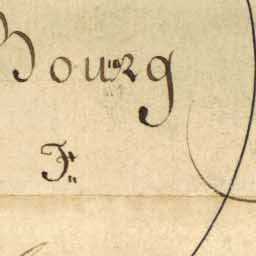 Bourg
F.